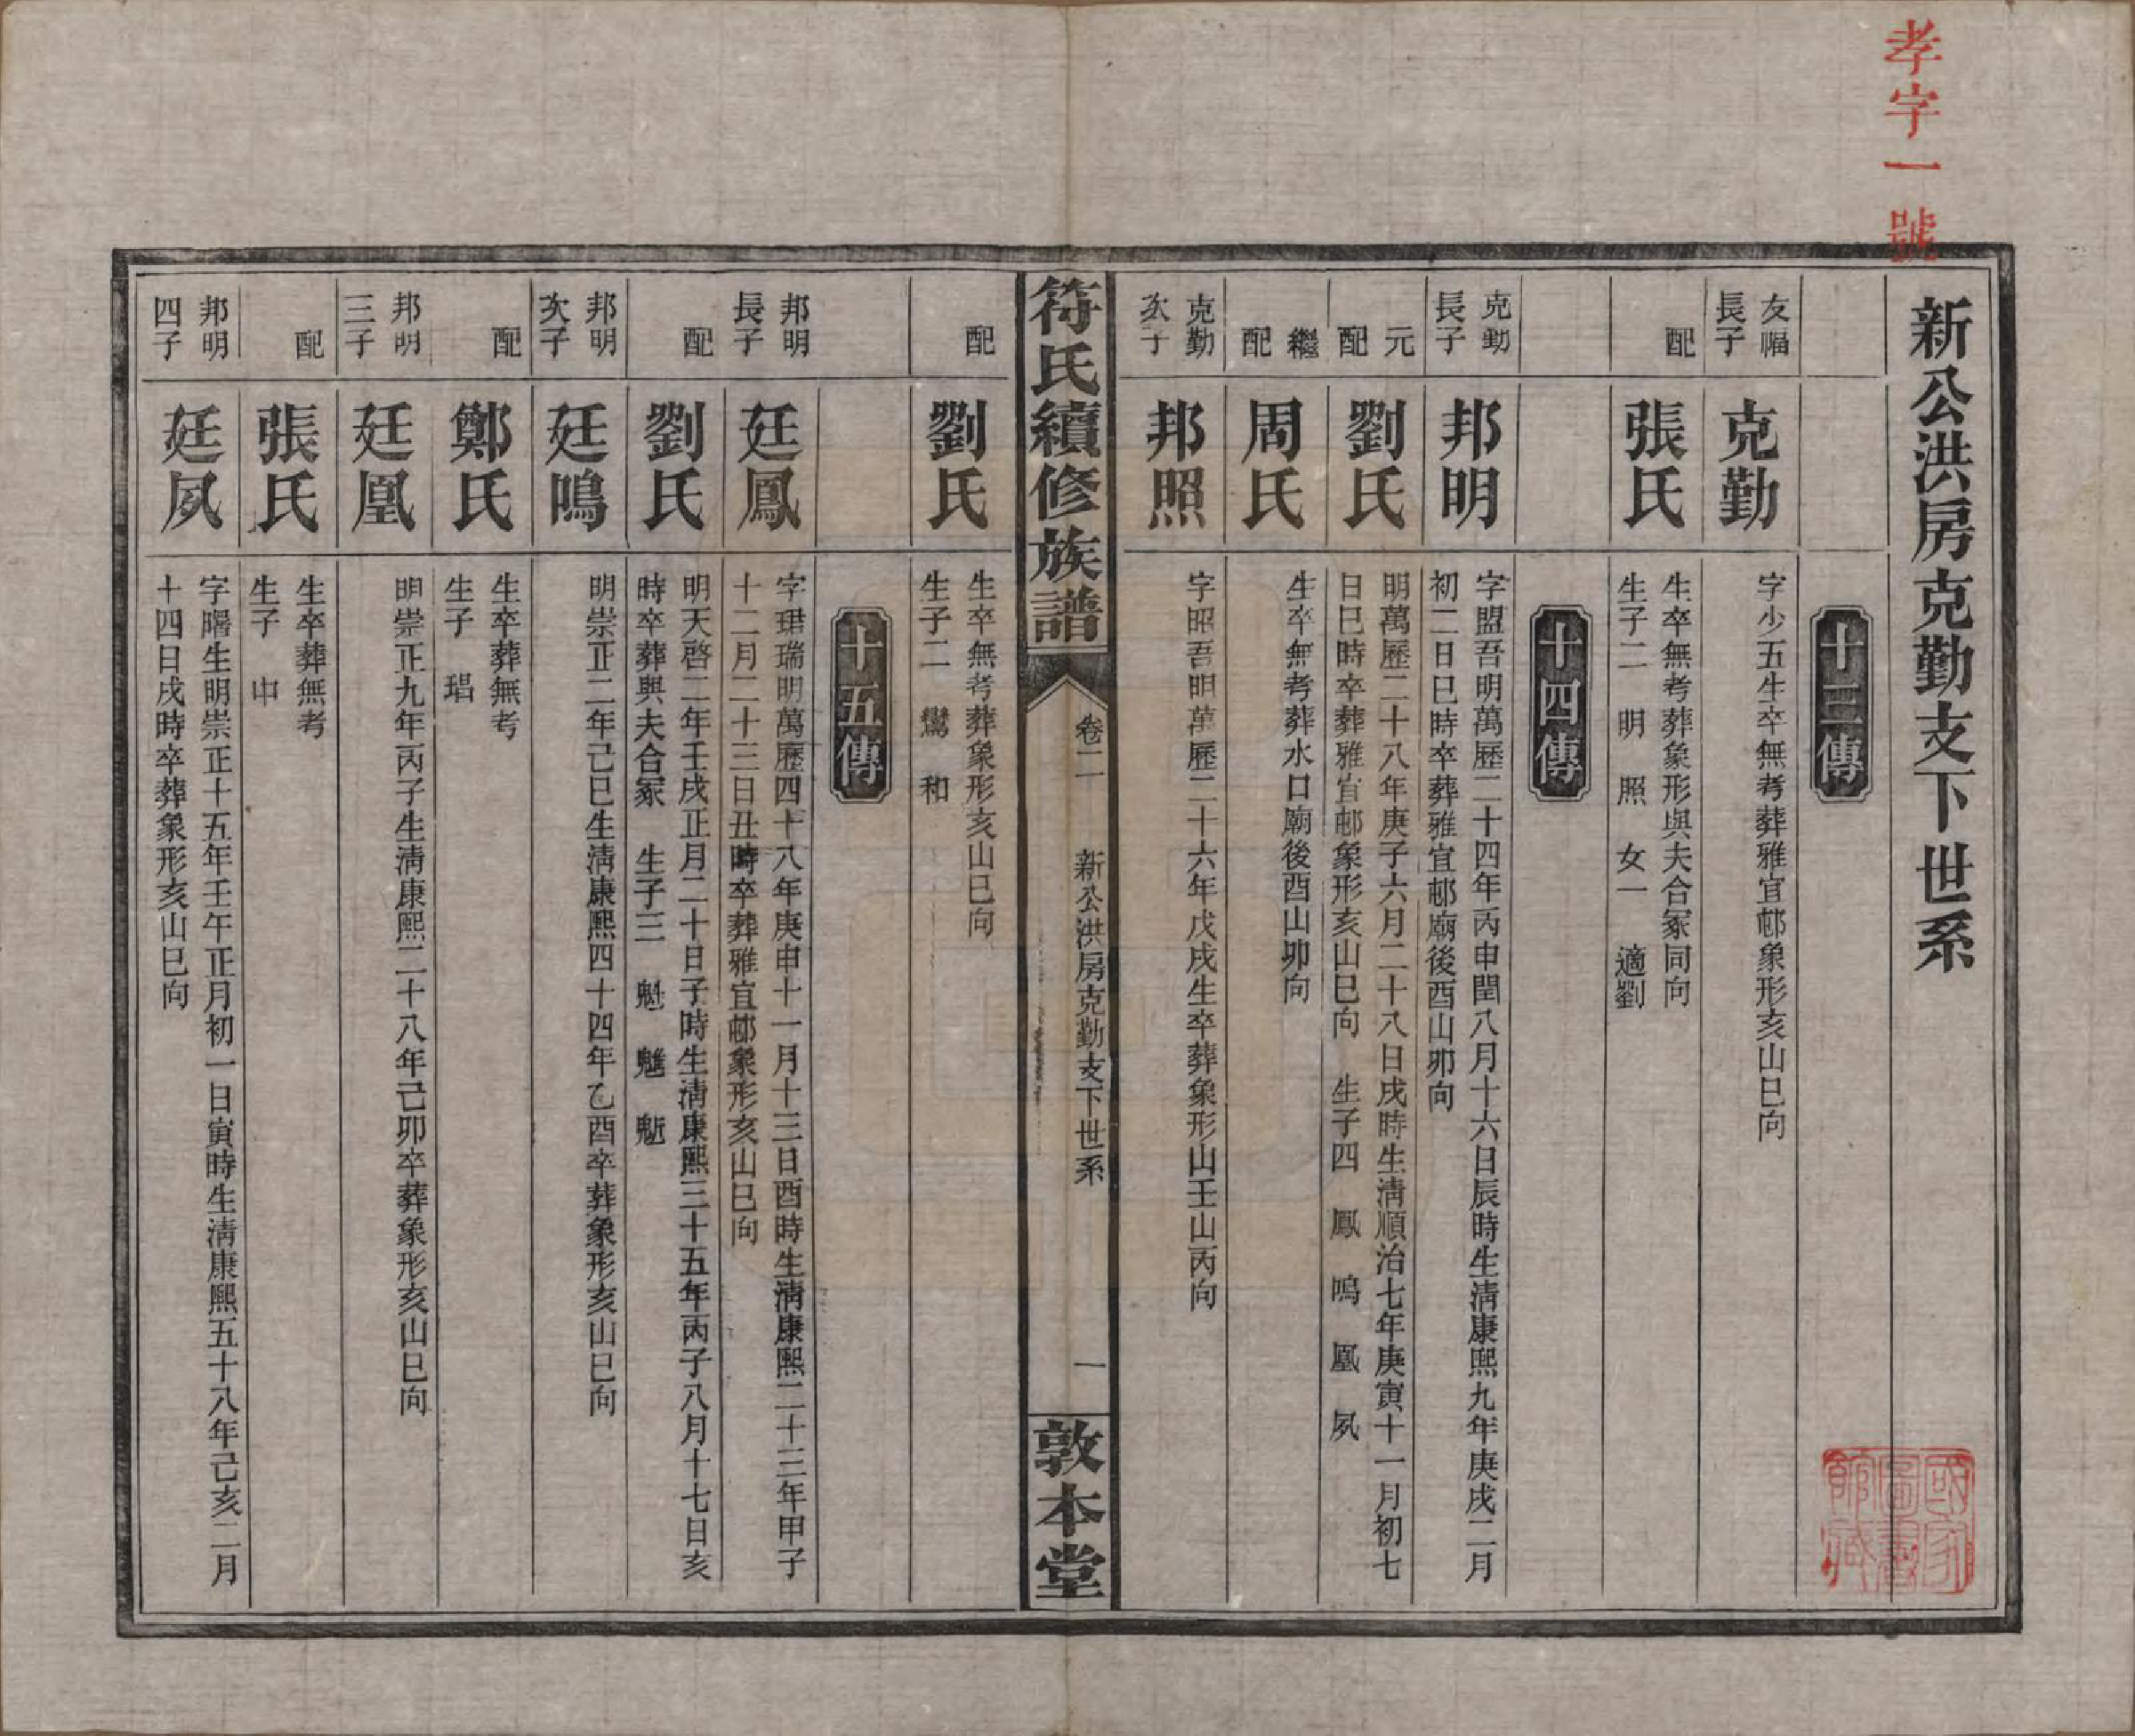 孝字一號
新公洪房克勤支下世系
十三傳
友福
長子
克勤
字少五生卒無考葬雅宜邨象形亥山巳向
配
張氏
生卒無考葬象形與夫合冢同向
生子二 明 照 女一 適劉
十四傳
克勤
長子
邦明
字盟吾明萬歷二十四年丙申閏八月十六日辰時生淸康熙九年庚戌二月
初二日巳時卒葬雅宜邨廟後酉山卯向
元
配
劉氏
明萬歷二十八年庚子六月二十八日戌時生淸順治七年庚寅十一月初七
日巳時卒葬雅宜邨象形亥山巳向 生子四 鳳 鳴 凰 夙
繼
配
周氏
生卒無考葬水口廟後酉山卯向
克勤
次子
邦照
字昭吾明萬歷二十六年戊戌生卒葬象形山壬山丙向
符氏續修族譜
卷二
新公洪房克勤支下世系
一
敦本堂
配
劉氏
生卒無考葬象形亥山巳向
生子二 鸞 和
十五傳
邦明
長子
廷鳳
字珺瑞明萬歷四十八年庚申十一月十三日酉時生淸康熙二十三年甲子
十二月二十三日丑時卒葬雅宜邨象形亥山巳向
配
劉氏
明天啓二年壬戌正月二十日子時生淸康熙三十五年丙子八月十七日亥
時卒葬與夫合冢 生子三 魁
邦明
次子
廷鳴
明崇正二年己巳生淸康熙四十四年乙酉卒葬象形亥山巳向
配
鄭氏
生卒葬無考
生子 琩
邦明
三子
廷凰
明崇正九年丙子生淸康熙二十八年己卯卒葬象形亥山巳向
配
張氏
生卒葬無考
生子 中
邦明
四子
廷夙
字曙生明崇正十五年壬午正月初一日寅時生淸康熙五十八年己亥二月
十四日戌時卒葬象形亥山巳向
國家
圖書
館藏